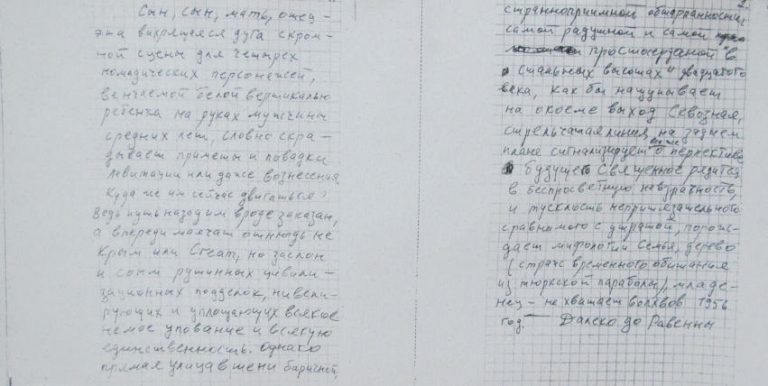 Сын, сын, мать, отец –
эта вихрящаяся дуга скром-
ной сцены для четырех
номадических персонажей,
венчаемой белой вертикалью
ребенка на руках мужчины
средних лет, словно скра-
дывает приметы и повадки
левитации или даже вознесения.
Куда же им сейчас двигаться?
Ведь путь назад им вроде заказан,
а впереди маячат отнюдь не
Крым или Cream, но заслон
и сонм рутинных цивили-
зационных подделок, нивели-
рующих и уплощающих всякое
немое упование и всякую
единственность. Однако
прямая улица в тени
страннопримной обшарпанности,
самой радушной и самой
простыерзаной "в
стальных высотах" двадцатого
века, как бы нащупывает
на окоеме выход. Сквозная,
стрельчатая линия на заднем
плане сигнализирует о перспективе
будущего. Священное рядится
в беспросветную невзрачность,
и тусклость непритязательного
сравнимого с утратой, порож-
дает мифологии. Семья, дерево
(страж временного обитания
из тюркской параболы), младе-
нец – не хватает волхвов. 1956
год. – Далеко до Равенны